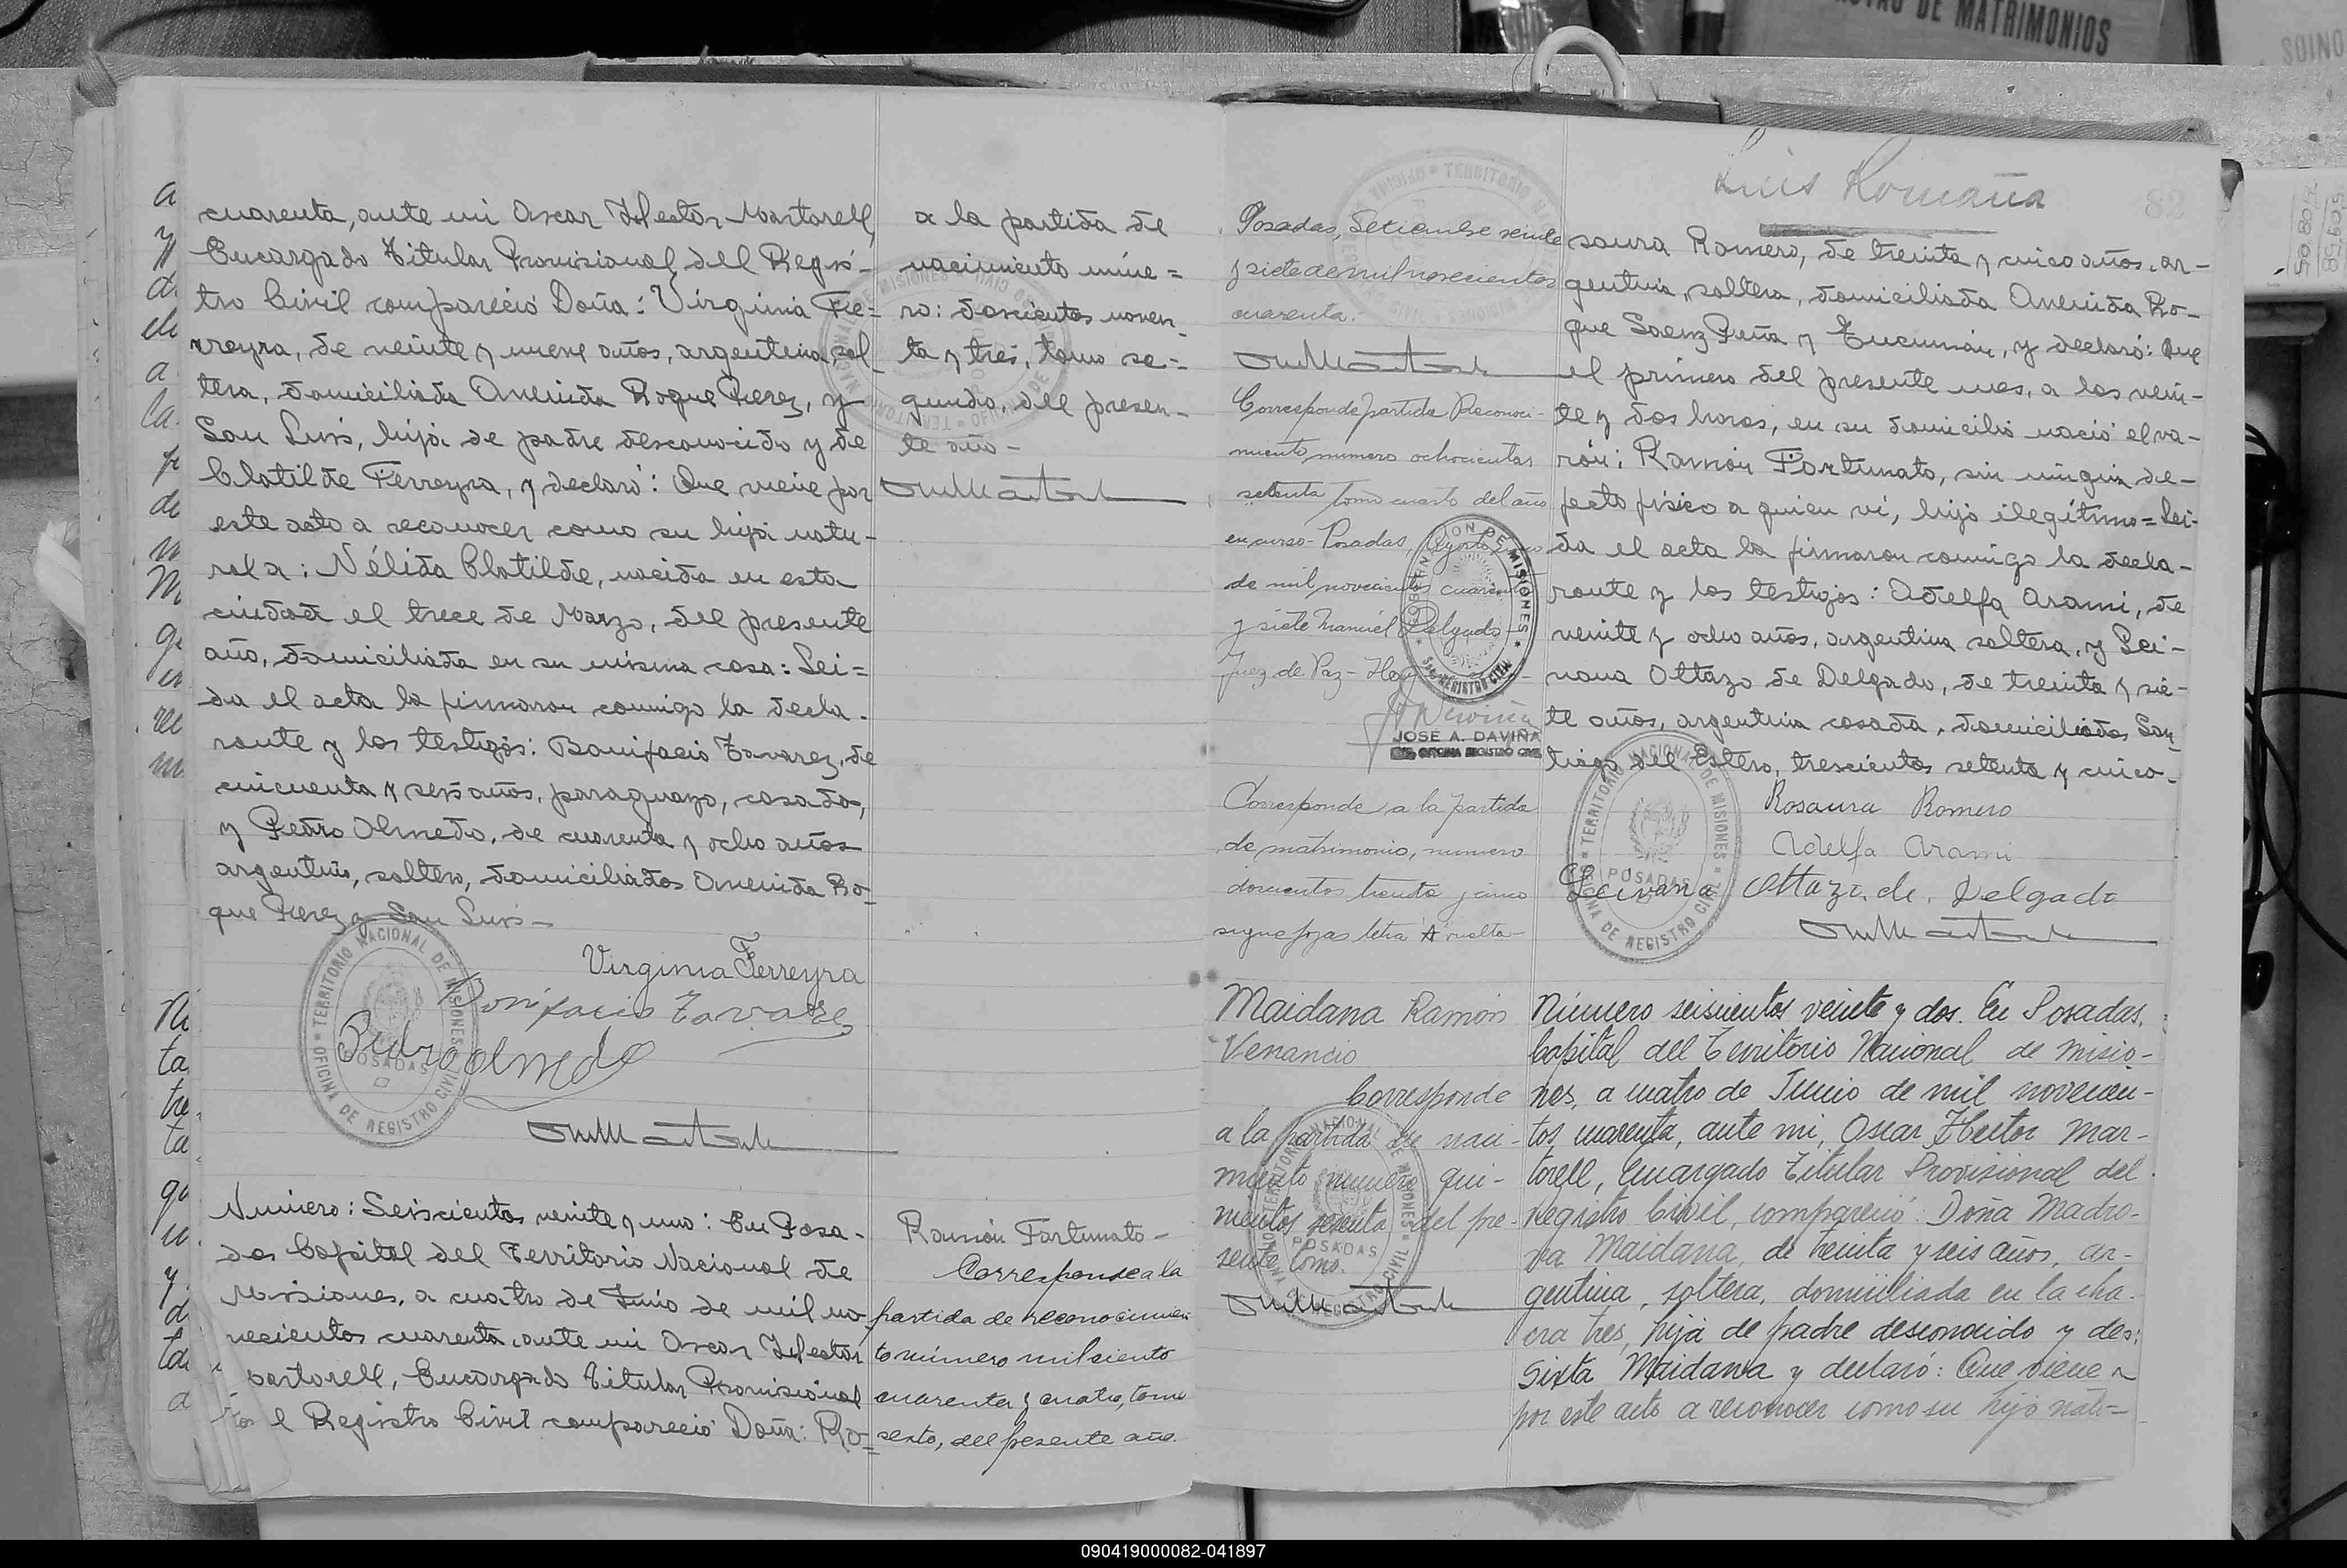 cuarenta, ante mi Oscar Hector Martorell,
Encargado Titular Provisional del Regis-
tro Civil compareció Doña: Virginia Fe=
rreyra, de veinte y nueve años, argentina, sol
tera, domiciliada Avenida Roque Perez, y
San Luis, hija de padre desconocido y de
Clotilde Ferreyra, y declaró: Que viene por
este acto a reconocer como su hija natu-
rala: Nélida Clotilde, nacida en esta
ciudad el trece de Marzo, del presente
año, domiciliada en su misma casa: Lei=
da el acta la firmaron conmigo la decla-
rante y los testigos: Bonifacio Tavarez, de
cincuenta y seis años, paraguayo, casado,
y Pedro Olmedo, de cuarenta y ocho años
argentino, soltero, domiciliados Avenida Ro-
que Perez y San Luis-
Virginia Ferreyra
Bonifacio Tavarez
Pedro Olmedo
TERRITORIO NACIONAL DE MISIONES
OFICINA DE REGISTRO CIVIL
POSADAS
a la partida de
nacimiento núme=
ro: doscientos noven-
ta y tres, tomo se-=
gundo, del presen-
te año-
Numero: Seiscientos veinte y uno: En Posa-
das Capital del Territorio Nacional de
Misiones, a cuatro de Junio de mil no
vecientos cuarenta, ante mi Oscar Hector
Martorell, Encargado Titular Provisional
l Registro Civil compareció Doña: Ro=
Ramón Fortunato-
Corresponde a la
partida de reconocimien
to número mil ciento
cuarenta y cuatro, tomo
sexto, del presente año.
Luis Romaña
82
Posadas, Setiembre veinte
y siete de mil novecientos
cuarenta.-
Corresponde partida Reconoci-
miento numero ochocientos
setenta tomo cuarto del año
en curso- Posadas, Agosto
de mil novecientos cuarenta
y siete Manuel Delgado-
Juez de Paz-
GOBERNACION DE MISIONES
REGISTRO CIVIL
JOSE A. DAVIÑA
OFICINA REGISTRO CIVIL
Corresponde a la partida
de matrimonio, numero
doscientos treinta y cinco
sigue fojas letra A vuelta-
saura Romero, de treinta y cinco años, ar-
gentina, soltera, domiciliada Avenida Ro-
que Saenz Peña y Tucumán, y declaró: Que
el primero del presente mes, a las vein-
te y dos horas, en su domicilio nació el va-
rón: Ramón Fortunato, sin ningún de-
fecto físico a quien vi, hijo ilegítimo=Lei-
da el acta la firmaron conmigo la decla-
rante y los testigos: Adelfa Arami, de
veinte y ocho años, argentina soltera, y Lei-
vana Ottazo de Delgado, de treinta y sie-
te años, argentina casada, domiciliadas San
tiago del Estero, trescientos setenta y cinco-
Rosaura Romero
Adelfa Arami
Leivana Ottazo de Delgado
TERRITORIO NACIONAL DE MISIONES
OFICINA DE REGISTRO CIVIL
POSADAS
Maidana Ramón
Venancio
Corresponde
a la partida de naci-
miento numero qui-
nientos sesenta del pre-
sente tomo.
TERRITORIO NACIONAL DE MISIONES
OFICINA DE REGISTRO CIVIL
POSADAS
Número seiscientos veinte y dos. En Posadas,
Capital del Territorio Nacional de Misio-
nes, a cuatro de Junio de mil novecien-
tos cuarenta, ante mi, Oscar Hector Mar-
torell, Encargado Titular Provisional del
Registro Civil, compareció: Doña Madro-
na Maidana, de treinta y seis años, ar-
gentina, soltera, domiciliada en la cha-
cra tres, hija de padre desconocido y de
Sixta Maidana y declaró: Que viene
por este acto a reconocer como su hijo natu=
DE MATRIMONIOS
090419000082-041897